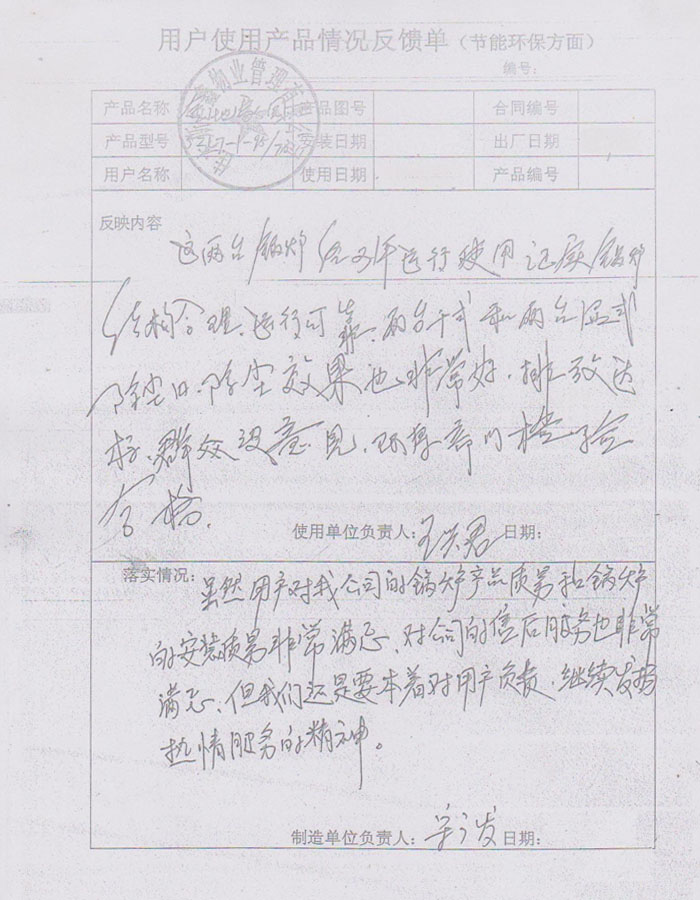 用户使用产品情况反馈单（节能环保方面）
编号：
产品名称 产品图号 合同编号
产品型号 安装日期 出厂日期
用户名称 使用日期 产品编号
物业管理有
反映内容
这两台锅炉经 年运行使用证实锅炉
结构合理、运行可靠、两台干式和两台湿式
除尘 除尘效果也非常好，排放达
标、群众没意见，环保部门检验
合格.
使用单位负责人： 日期：
落实情况：虽然用户对我公司的锅炉产品质量和锅炉
的安装质量非常满意、对公司的售后服务也非常
满意、但我们还是要本着对用户负责，继续发扬
热情服务的精神。
制造单位负责人： 日期：